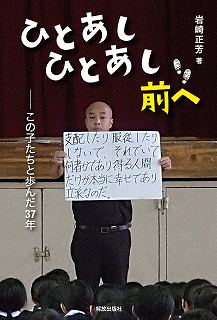 岩崎正芳 著
ひとあし
ひとあし
前へ
――この子たちと歩んだ37年
支配したり服従したり
しないで、それでいて
何者かであり得る人間
だけが本当に幸せであり
立派なのだ。
解放出版社